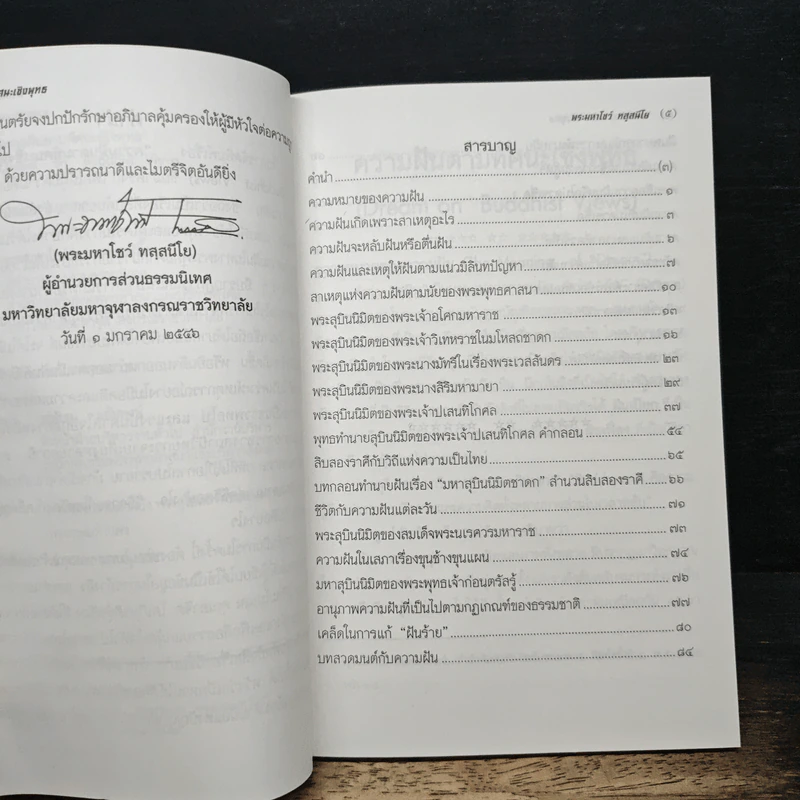 นะเชิงพุทธ
นตรัยจงปกปักรักษาอภิบาลคุ้มครองให้ผู้มีหัวใจต่อความ
ไป
ด้วยความปรารถนาดีและไมตรีจิตอันดียิ่ง
(พระมหาโชว์ ทสฺสนีโย)
ผู้อำนวยการส่วนธรรมนิเทศ
มหาวิทยาลัยมหาจุฬาลงกรณราชวิทยาลัย
วันที่ ๑ มกราคม ๒๕๔๖
พระมหาโชว์ ทสฺสนีโย (๕)
สารบาญ
คำนำ (๓)
ความหมายของความฝัน ๑
ความฝันเกิดเพราะสาเหตุอะไร ๓
ความฝันจะหลับฝันหรือตื่นฝัน ๖
ความฝันและเหตุให้ฝันตามแนวมิลินทปัญหา ๗
สาเหตุแห่งความฝันตามนัยของพระพุทธศาสนา ๑๐
พระสุบินนิมิตของพระเจ้าอโศกมหาราช ๑๓
พระสุบินนิมิตของพระเจ้าวิเทหราชในมโหสถชาดก ๑๖
พระสุบินนิมิตของพระนางมัทรีในเรื่องพระเวสสันดร ๒๓
พระสุบินนิมิตของพระนางสิริมหามายา ๒๙
พระสุบินนิมิตของพระเจ้าปเสนทิโกศล ๓๗
พุทธทำนายสุบินนิมิตของพระเจ้าปเสนทิโกศล คำกลอน ๕๔
สิบสองราศีกับวิถีแห่งความเป็นไทย ๖๕
บทกลอนทำนายฝันเรื่อง "มหาสุบินนิมิตชาดก" สำนวนสิบสองราศี ๖๖
ชีวิตกับความฝันแต่ละวัน ๗๑
พระสุบินนิมิตของสมเด็จพระนเรศวรมหาราช ๗๓
ความฝันในเสภาเรื่องขุนช้างขุนแผน ๗๔
มหาสุบินนิมิตของพระพุทธเจ้าก่อนตรัสรู้ ๗๖
อานุภาพความฝันที่เป็นไปตามกฎเกณฑ์ของธรรมชาติ ๗๗
เคล็ดในการแก้ "ฝันร้าย" ๘๐
บทสวดมนต์กับความฝัน ๘๔